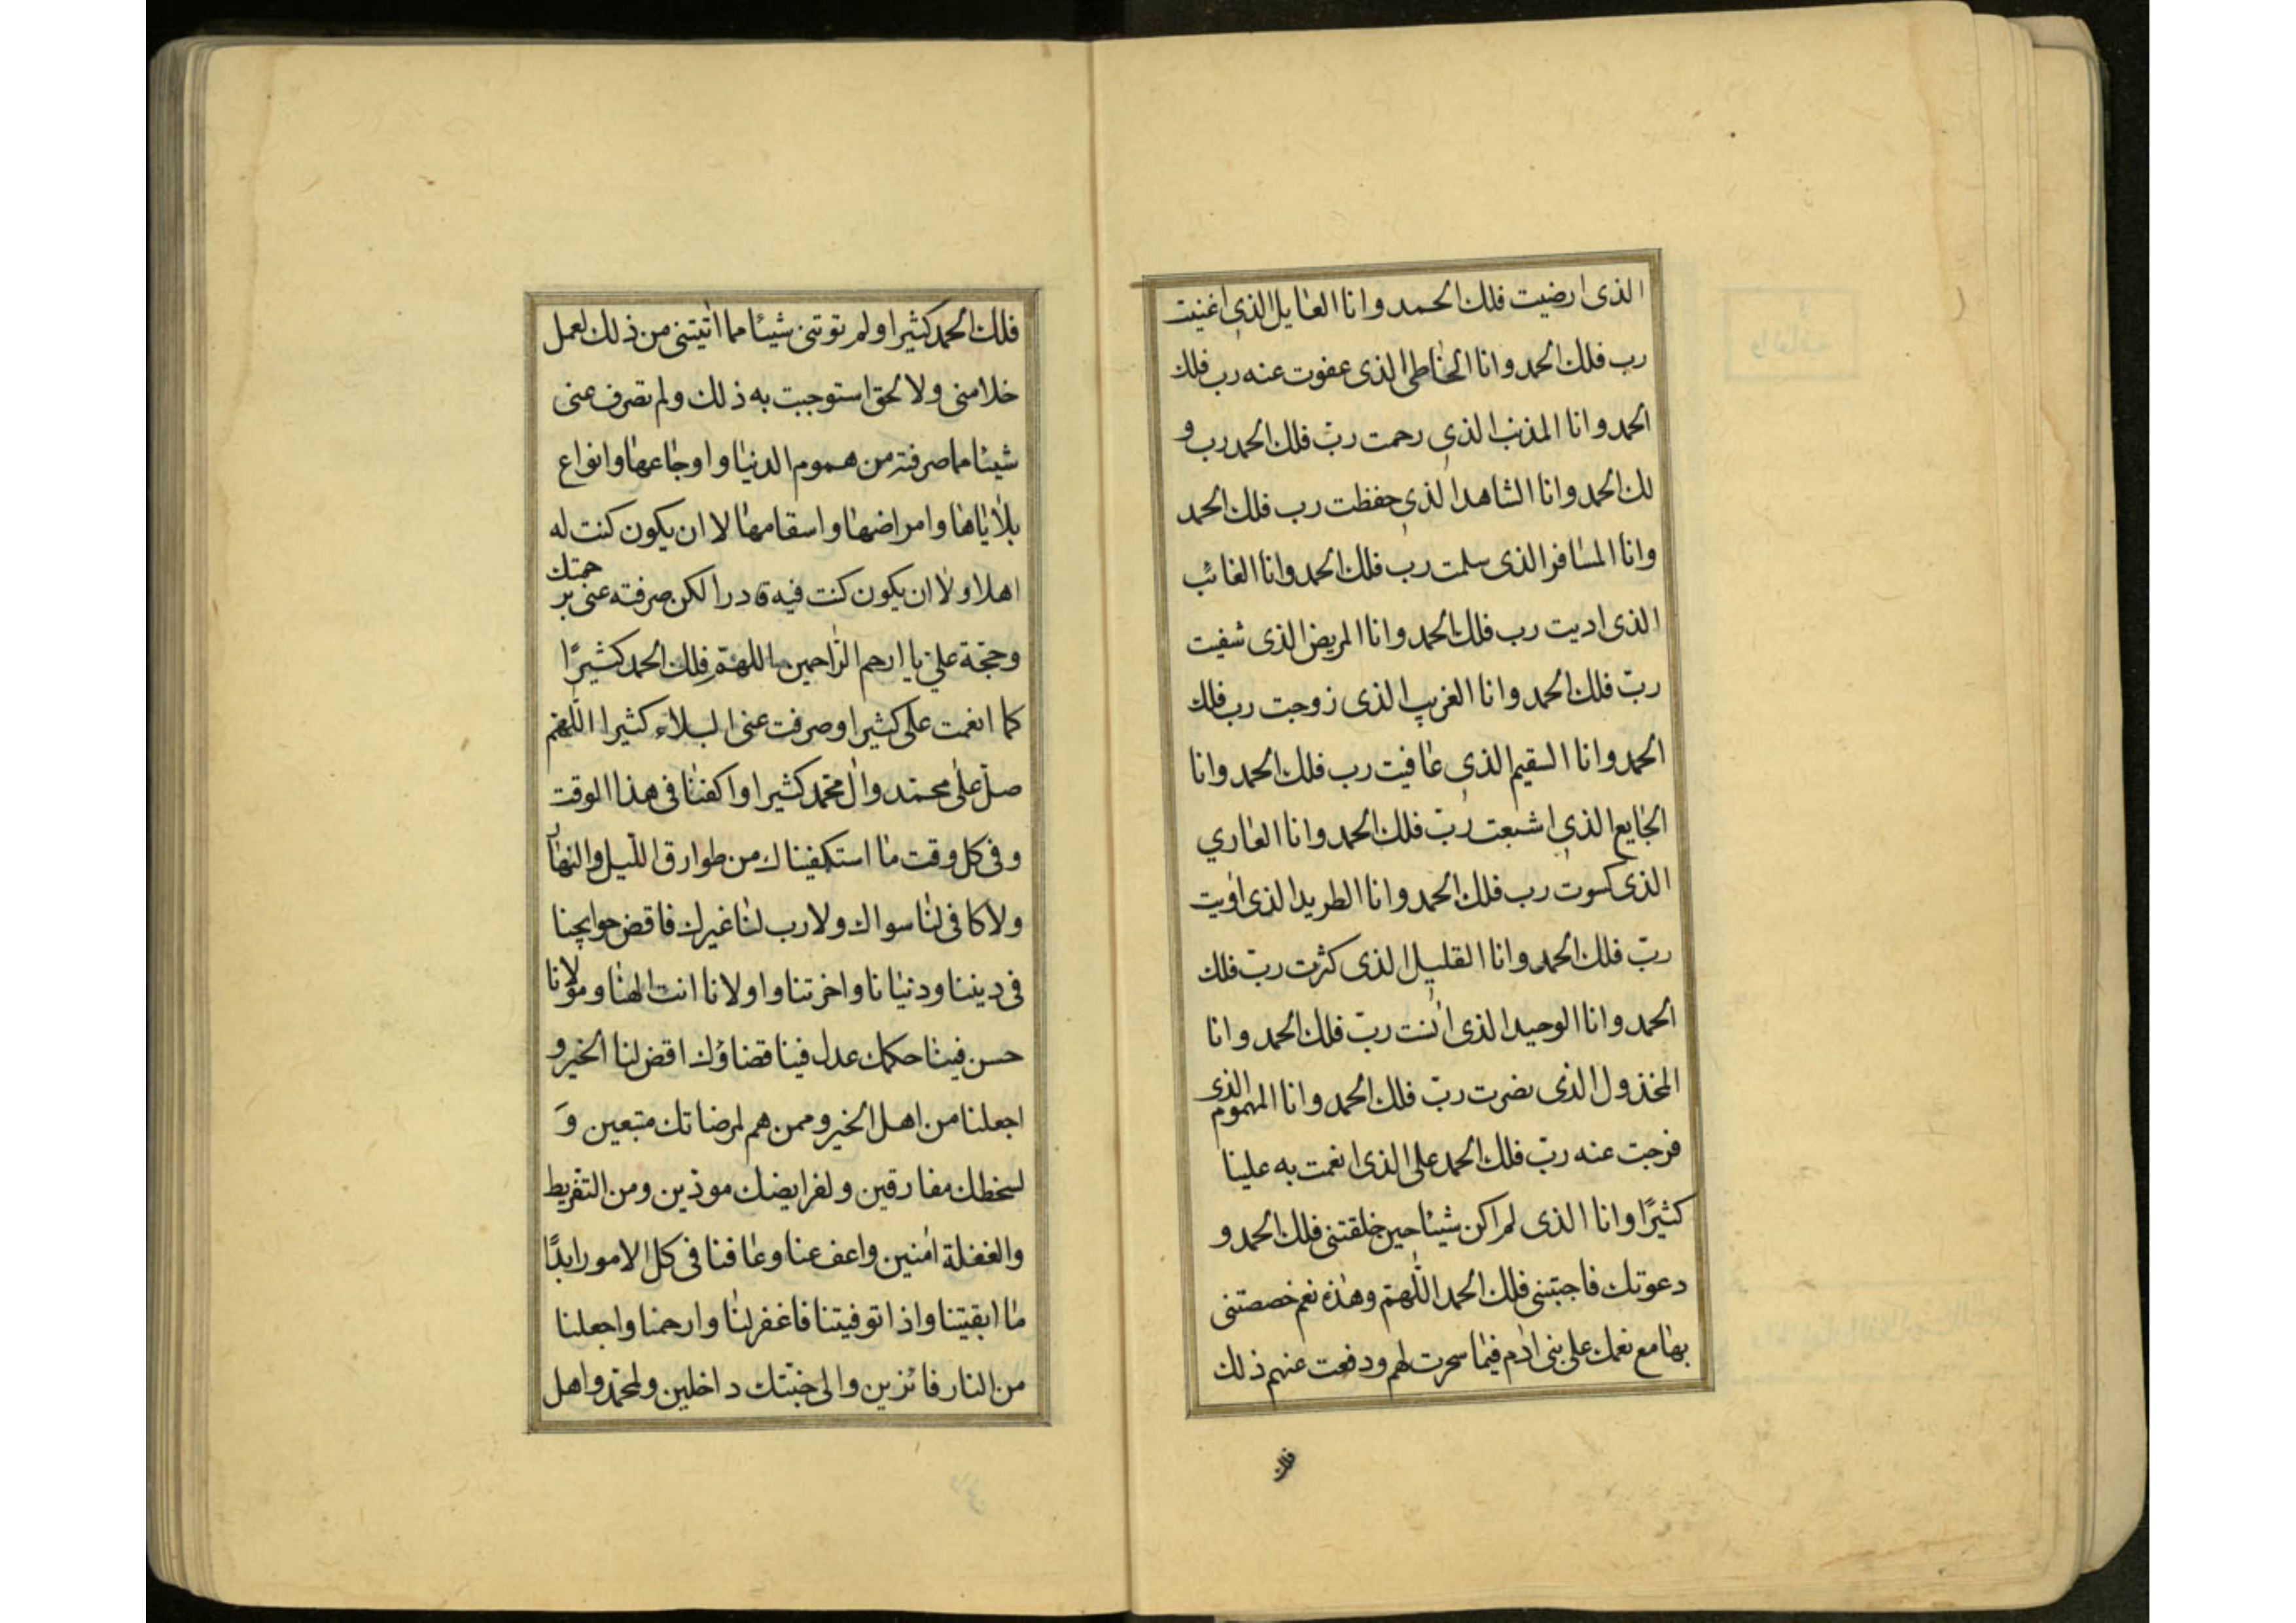 الذی ارضیت فلك الحمد وانا العایل الذی اغنیت
رب فلك الحمد وانا الخاطی الذی عفوت عنه رب فلك
الحمد وانا المذنب الذی رحمت ربّ فلك الحمد رب و
لك الحمد وانا الشاهد الذی حفظت رب فلك الحمد
وانا المسافر الذی سلمت رب فلك الحمد وانا الغائب
الذی ادیت رب فلك الحمد وانا المریض الذی شفیت
ربّ فلك الحمد وانا الغریب الذی زوجت رب فلك
الحمد وانا السقیم الذی عافیت رب فلك الحمد وانا
الجایع الذی اشبعت ربّ فلك الحمد وانا العاري
الذی كسوت رب فلك الحمد وانا الطرید الذی اویت
ربّ فلك الحمد وانا القلیل الذی كثرت ربّ فلك
الحمد وانا الوحید الذی انست ربّ فلك الحمد وانا
المخذول الذی نصرت ربّ فلك الحمد وانا المهموم الذی
فرجت عنه ربّ فلك الحمد علی الذی انعمت به علینا
كثیرًا وانا الذی لم اكن شیئا حین خلقتنی فلك الحمد و
دعوتك فاجبتنی فلك الحمد اللّٰهمّ وهٰذه نعم خصصتنی
بها مع نعمك علی بنی ادم فیما سخرت لهم ودفعت عنهم ذلك
فلك
فلك الحمد كثیرا ولم توتنی شیئا مما اتیتنی من ذلك لعمل
خلا منی ولا لحق استوجبت به ذلك ولم تصرف عنی
شیئا مما صرفته من هموم الدنیا واوجاعها وانواع
بلایاها وامراضها واسقامها لا ان یكون كنت له
اهلا ولا ان یكون كنت فیه قادرا لكن صرفته عنی برحمتك
وحجّة علیّ یا ارحم الرّاحمین اللهمّ فلك الحمد كثیرًا
كما انعمت علی كثیرا وصرفت عنی البلاء كثیرا اللّهمّ
صلّ علی محمّد وآل محمّد كثیرا واكفنا فی هذا الوقت
وفی كل وقت ما استكفیناك من طوارق اللّیل والنهار
ولا كافی لنا سواك ولا رب لنا غیرك فاقض حوایجنا
فی دیننا ودنیانا واخرتنا واولانا انت الهنا ومولانا
حسن فینا حكمك عدل فینا قضاؤك اقض لنا الخیر و
اجعلنا من اهل الخیر وممن هم لمرضاتك متبعین وَ
لسخطك مفارقین ولفرایضك موذین ومن التفریط
والغفلة امنین واعف عنا وعافنا فی كل الامور ابدًا
ما ابقیتنا واذا توفیتنا فاغفر لنا وارحمنا واجعلنا
من النار فائزین والی جنتك داخلین ولمحمّد واهل